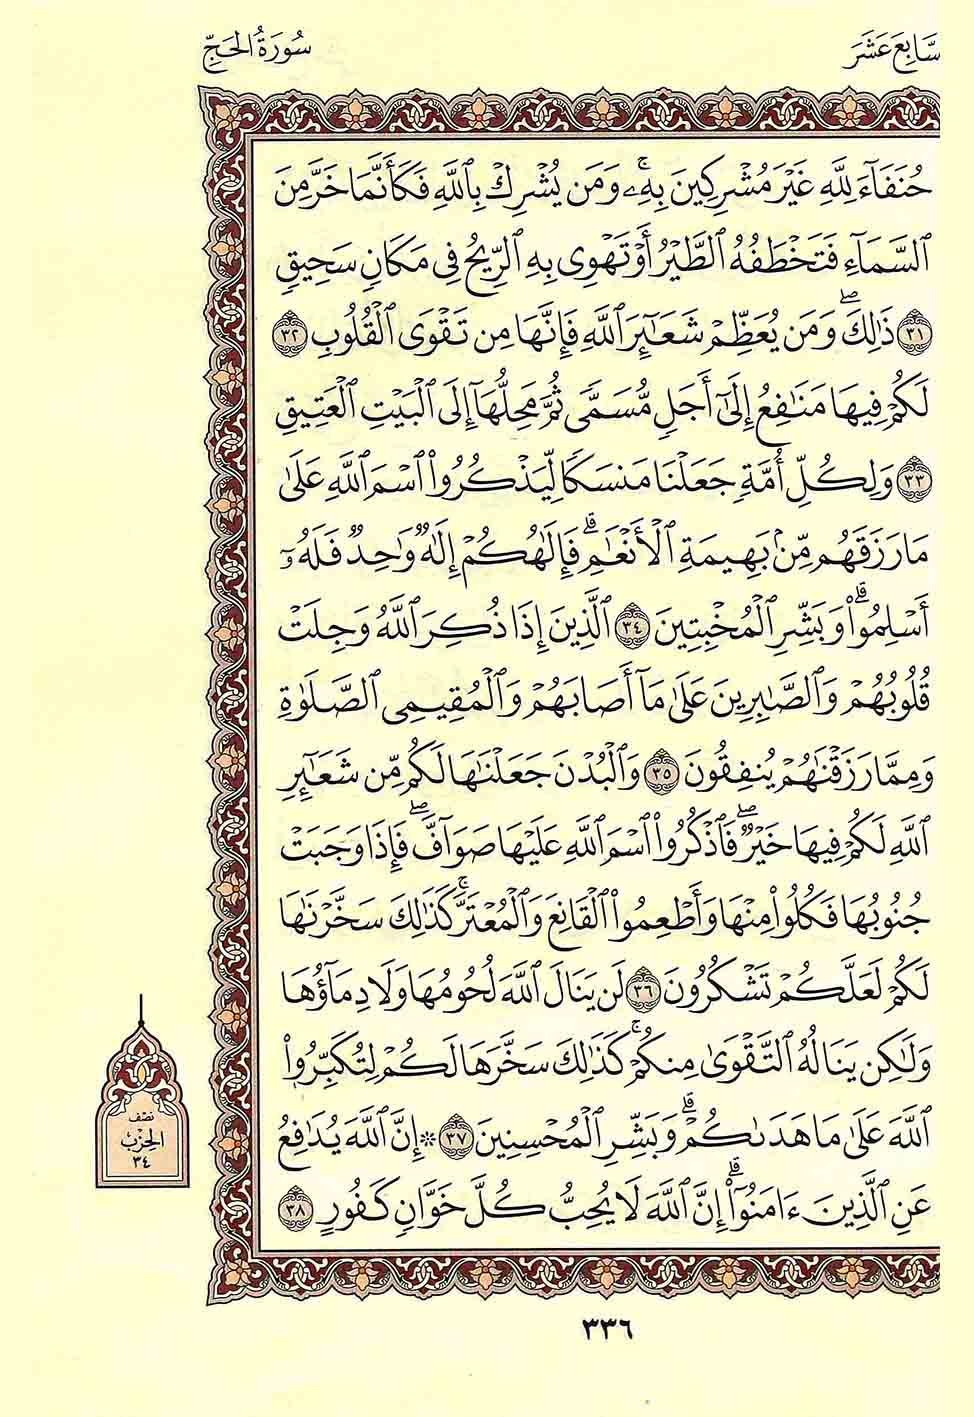 سَّابِعَ عَشَرَ
سُورَةُ الحَجِّ
حُنَفَآءَ لِلَّهِ غَيْرَ مُشْرِكِينَ بِهِۦۚ وَمَن يُشْرِكْ بِٱللَّهِ فَكَأَنَّمَا خَرَّ مِنَ
ٱلسَّمَآءِ فَتَخْطَفُهُ ٱلطَّيْرُ أَوْ تَهْوِى بِهِ ٱلرِّيحُ فِى مَكَانٍ سَحِيقٍ
٣١ ذَٰلِكَۖ وَمَن يُعَظِّمْ شَعَٰٓئِرَ ٱللَّهِ فَإِنَّهَا مِن تَقْوَى ٱلْقُلُوبِ ٣٢
لَكُمْ فِيهَا مَنَٰفِعُ إِلَىٰٓ أَجَلٍ مُّسَمًّى ثُمَّ مَحِلُّهَآ إِلَى ٱلْبَيْتِ ٱلْعَتِيقِ
٣٣ وَلِكُلِّ أُمَّةٍ جَعَلْنَا مَنسَكًا لِّيَذْكُرُوا۟ ٱسْمَ ٱللَّهِ عَلَىٰ
مَا رَزَقَهُم مِّنۢ بَهِيمَةِ ٱلْأَنْعَٰمِۗ فَإِلَٰهُكُمْ إِلَٰهٌ وَٰحِدٌ فَلَهُۥٓ
أَسْلِمُوا۟ۗ وَبَشِّرِ ٱلْمُخْبِتِينَ ٣٤ ٱلَّذِينَ إِذَا ذُكِرَ ٱللَّهُ وَجِلَتْ
قُلُوبُهُمْ وَٱلصَّٰبِرِينَ عَلَىٰ مَآ أَصَابَهُمْ وَٱلْمُقِيمِى ٱلصَّلَوٰةِ
وَمِمَّا رَزَقْنَٰهُمْ يُنفِقُونَ ٣٥ وَٱلْبُدْنَ جَعَلْنَٰهَا لَكُم مِّن شَعَٰٓئِرِ
ٱللَّهِ لَكُمْ فِيهَا خَيْرٌۖ فَٱذْكُرُوا۟ ٱسْمَ ٱللَّهِ عَلَيْهَا صَوَآفَّۖ فَإِذَا وَجَبَتْ
جُنُوبُهَا فَكُلُوا۟ مِنْهَا وَأَطْعِمُوا۟ ٱلْقَانِعَ وَٱلْمُعْتَرَّۚ كَذَٰلِكَ سَخَّرْنَٰهَا
لَكُمْ لَعَلَّكُمْ تَشْكُرُونَ ٣٦ لَن يَنَالَ ٱللَّهَ لُحُومُهَا وَلَا دِمَآؤُهَا
وَلَٰكِن يَنَالُهُ ٱلتَّقْوَىٰ مِنكُمْۚ كَذَٰلِكَ سَخَّرَهَا لَكُمْ لِتُكَبِّرُوا۟
ٱللَّهَ عَلَىٰ مَا هَدَىٰكُمْۗ وَبَشِّرِ ٱلْمُحْسِنِينَ ٣٧ ۞ إِنَّ ٱللَّهَ يُدَٰفِعُ
عَنِ ٱلَّذِينَ ءَامَنُوٓا۟ۗ إِنَّ ٱللَّهَ لَا يُحِبُّ كُلَّ خَوَّانٍ كَفُورٍ ٣٨
نصف
الحزب
٣٤
٣٣٦